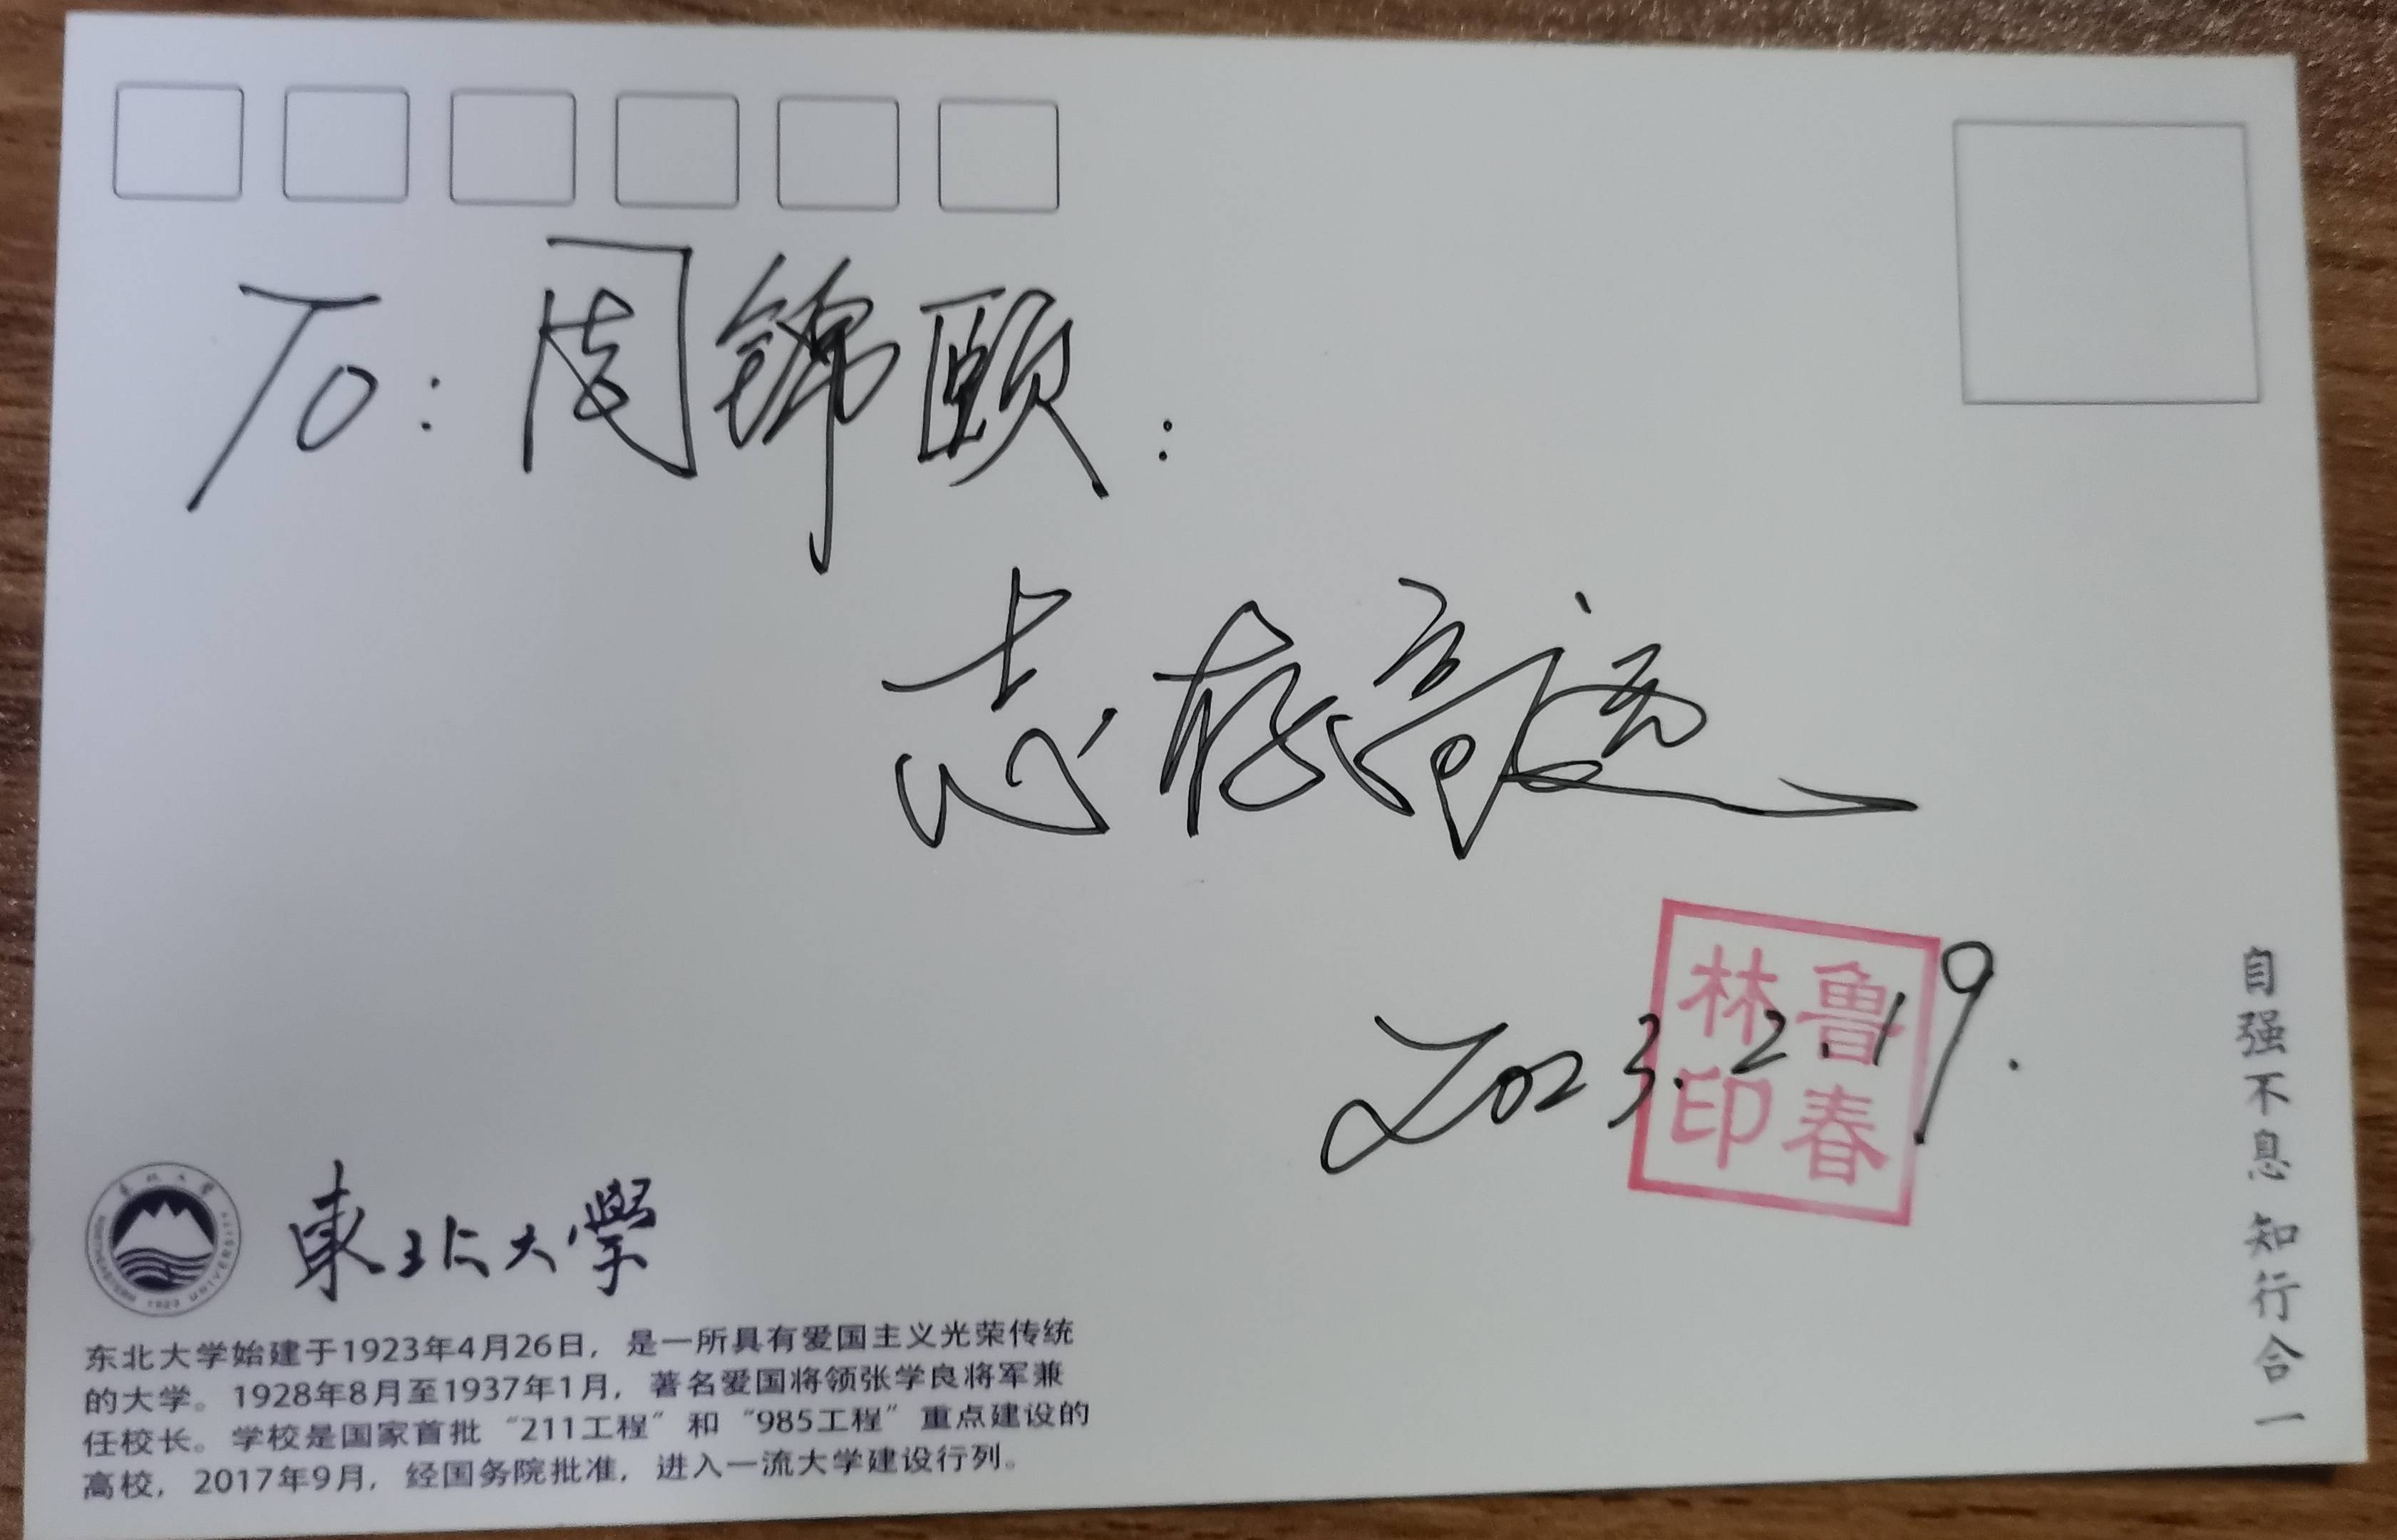 To：周锦颐：
志存高远
2023.2.19.
鲁春
林印
自强不息 知行合一
東北大學
东北大学
NORTHEASTERN UNIVERSITY
1923
东北大学始建于1923年4月26日，是一所具有爱国主义光荣传统
的大学。1928年8月至1937年1月，著名爱国将领张学良将军兼
任校长。学校是国家首批“211工程”和“985工程”重点建设的
高校，2017年9月，经国务院批准，进入一流大学建设行列。